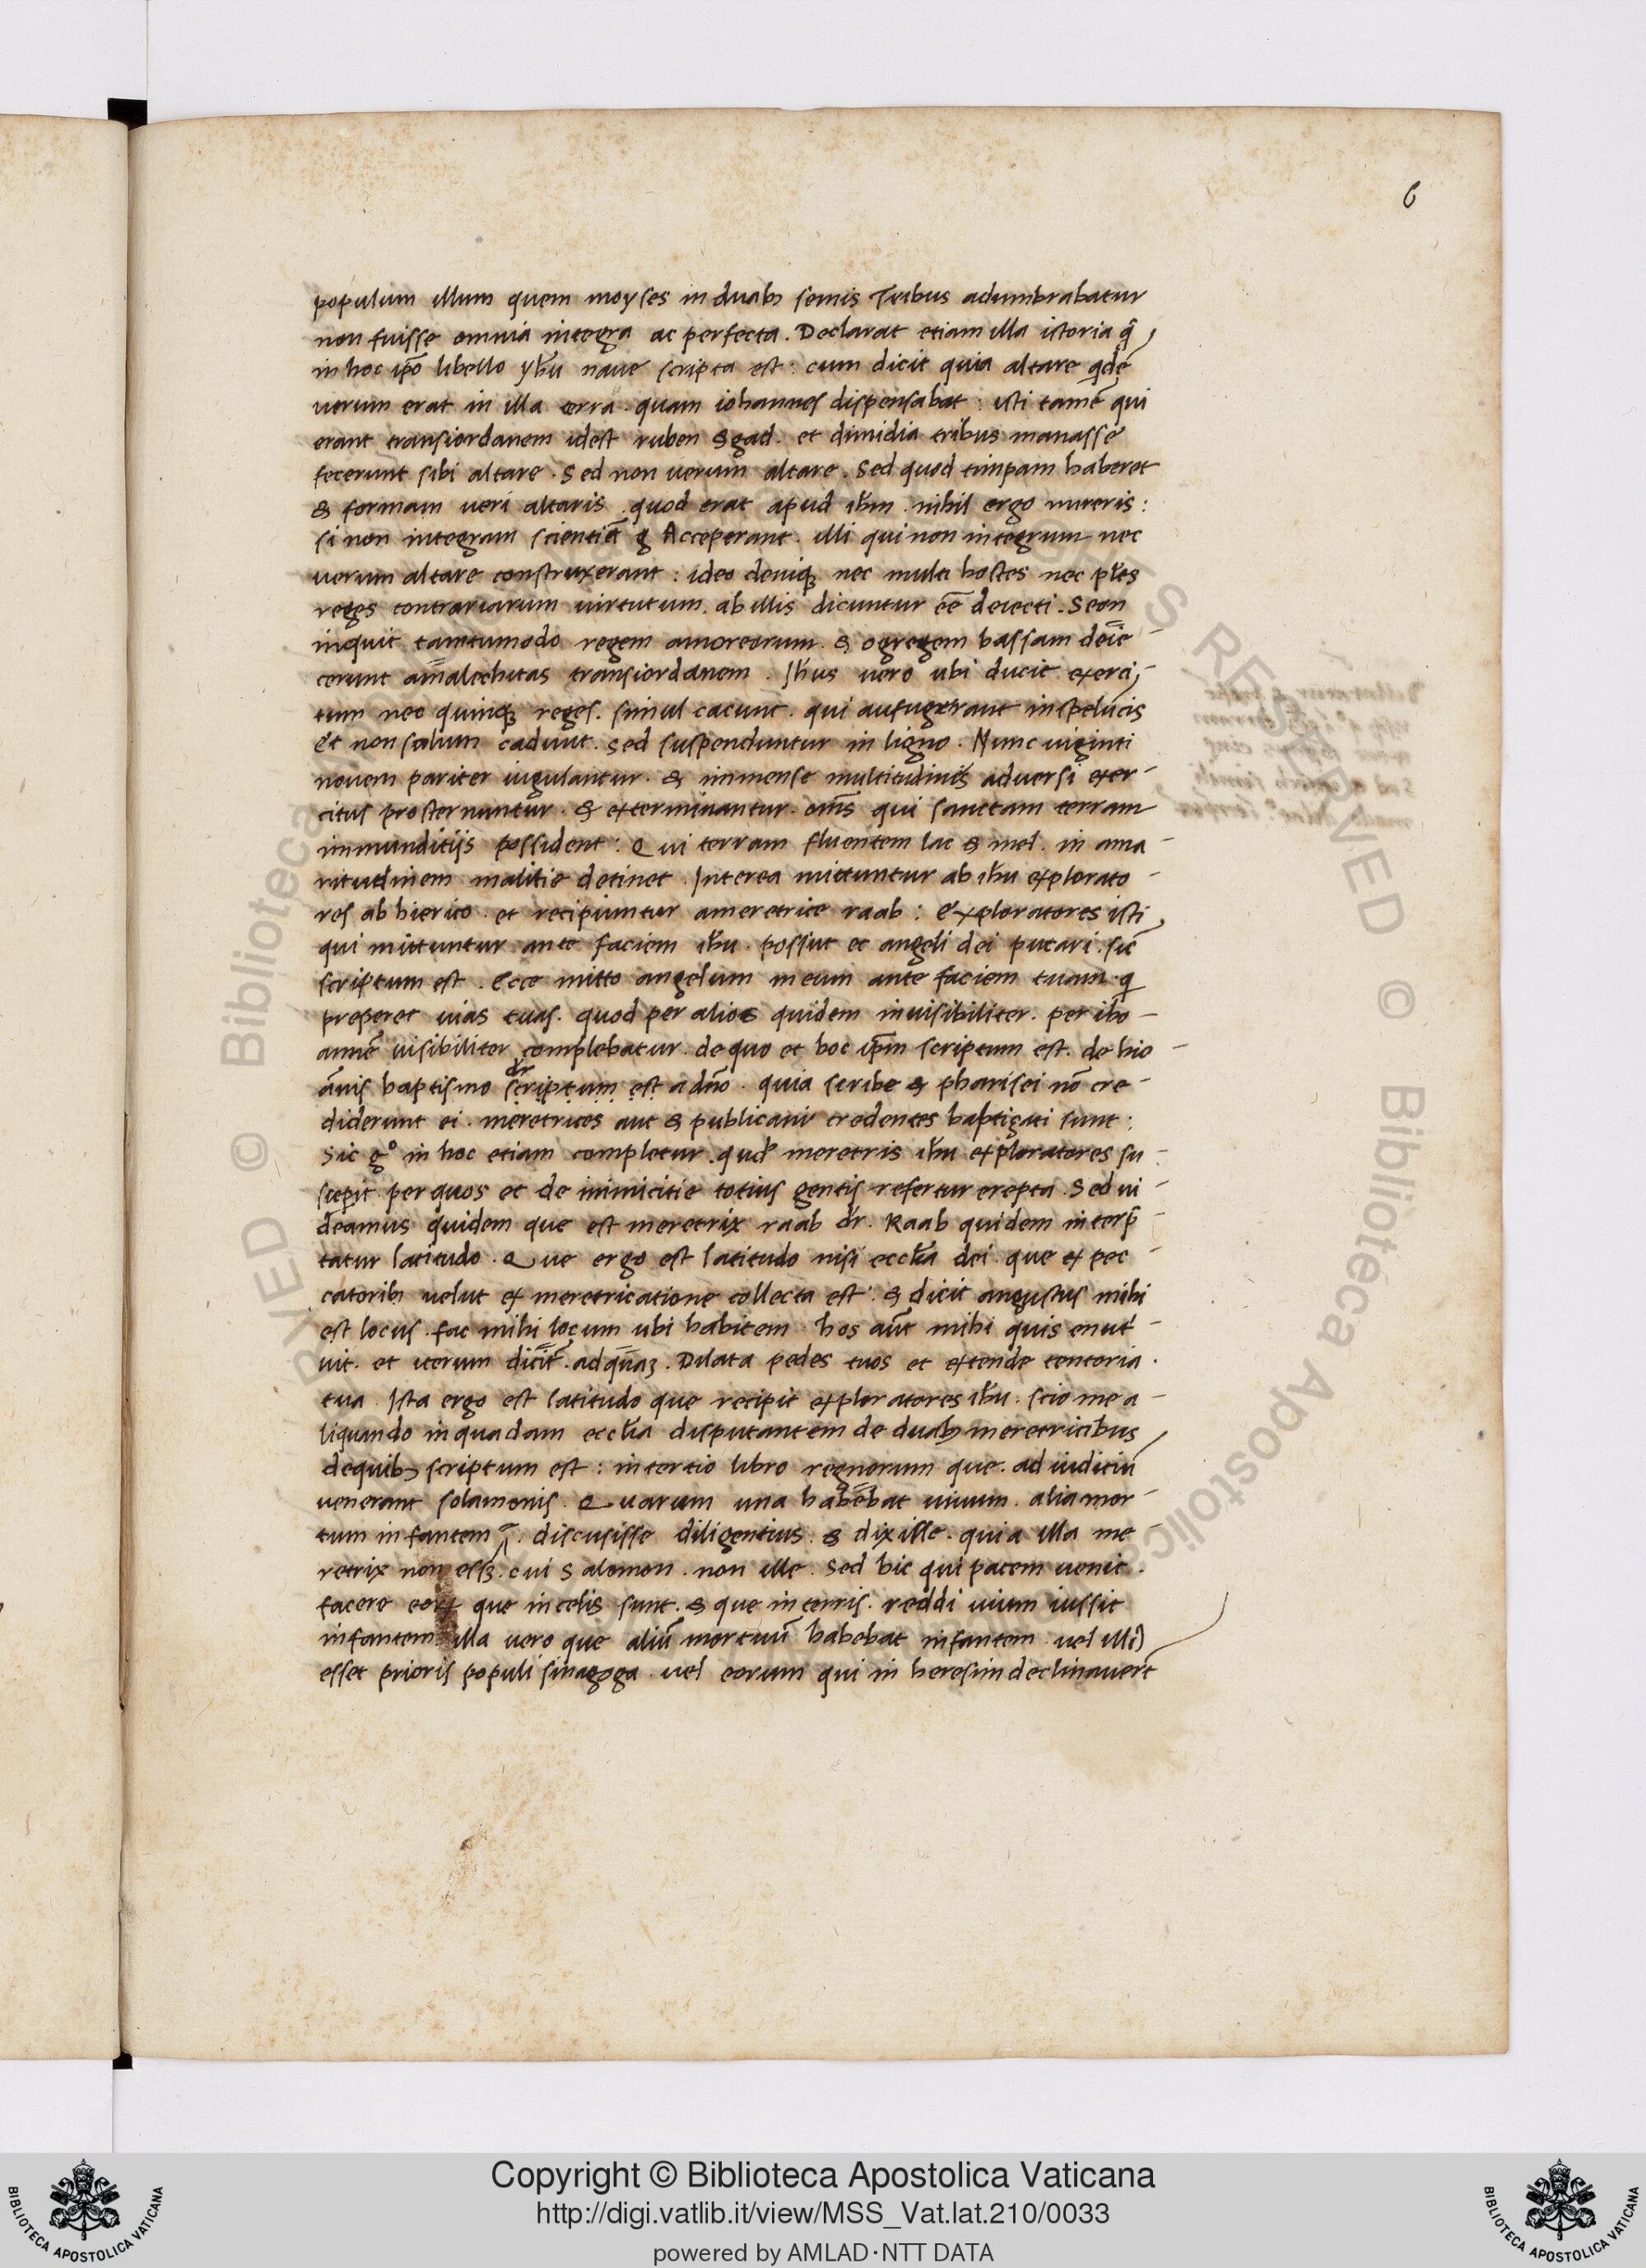 6
populum illum quem moyses in duab; semis Tribus adumbrabatur
non fuisse omnia integra ac perfecta. Declarat etiam illa istoria q̄
in hoc ip̄o libello yhū naue scripta est: cum dicit quia altare qidē
uerum erat in illa terra. quam iohannes dispensabat: isti tamē qui
erant transiordanem idest ruben & gad. et dimidia tribus manasse
fecerunt sibi altare. Sed non uerum altare. Sed quod timpam haberet
& formam ueri altaris. quod erat apud ihm. nihil ergo mireris:
si non integram scientiā Acceperant. illi qui non integrum nec
uerum altare construxerant: ideo deniq; nec multi hostes nec pl̄es
reges contrariarum uirtutum. ab illis dicuntur eē deiecti. Seon
inquit tamtumodo regem amoreorum. & og regem bassam deie-
cerunt amalechitas transiordanem. Ihus uero ubi ducit exerci-
tum nec quinq; reges. simul cacunt. qui aufugerant in speluncis
et non solum cadunt. sed suspenduntur in ligno. Nunc uiginti
nouem pariter iugulantur. & immense multitudinis aduersi exer-
citus prosternuntur. & exterminantur. om̄s qui sanctam terram
immunditijs possident: Qui terram fluentem lac & mel. in ama-
ritudinem malitie detinet. Interea mittuntur ab ihu explorato-
res ab hierico. et recipiuntur a meretrice raab: Exploratores isti
qui mittuntur ante faciem ihu. possūt et angeli dei putari. sic̄
scriptum est. Ecce mitto angelum meum ante faciem tuam. q
preperet uias tuas. quod per alios quidem inuisibiliter. per iho-
annē uisibiliter complebatur. de quo et hoc ip̄m scriptum est. de hio-
āuis baptismo scriptum est a dn̄o. quia scribe & pharisei nō cre-
dr
diderunt ei. meretrices aut & publicani credentes baptizati sunt:
Sic g° in hoc etiam completur. quod meretris ihu exploratores su-
scepit. per quos et de inimicitie totius gentis refertur erepta. Sed ui-
deamus quidem que est meretrix raab dr. Raab quidem interp̄-
tatur latitudo. Que ergo est latitudo nisi eccl̄ia dei. que ex pec-
catorib; uelut ex meretricatione collecta est. & dicit angustus mihi
est locus. fac mihi locum ubi habitem. hos aūt mihi quis enut-
uit. et iterum dicit. ad quaz. Dilata pedes tuos et extende tentoria.
tua. Ista ergo est latitudo que recipit exploratores ihu. scio me a-
liquando in quadam eccl̄ia disputantem de duab; meretricibus
de quib; scriptum est: in tertio libro regnorum que. ad iudiciū
uenerant solamonis. Quarum una habebat uiuum. alia mor-
tum infantem. discusisse diligentius. & dixisse. quia illa me-
retrix non ess;. cui Salomon. non ille. Sed hic qui pacem uenit.
facere eorum que in celis sunt. & que in terris. reddi uiuum iussit
infantem illa uero que aliū mortuū habebat infantem. uel illi
esset prioris populi sinagoga. uel eorum qui in heresim declinauert̄
Copyright © Biblioteca Apostolica Vaticana
http://digi.vatlib.it/view/MSS_Vat.lat.210/0033
powered by AMLAD·NTT DATA
BIBLIOTECA APOSTOLICA VATICANA
BIBLIOTECA APOSTOLICA VATICANA